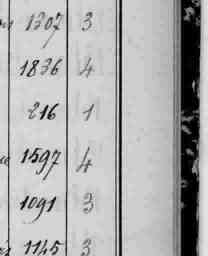 1307 3
1836 4
216 1
1597 4
1091 3
1145 3